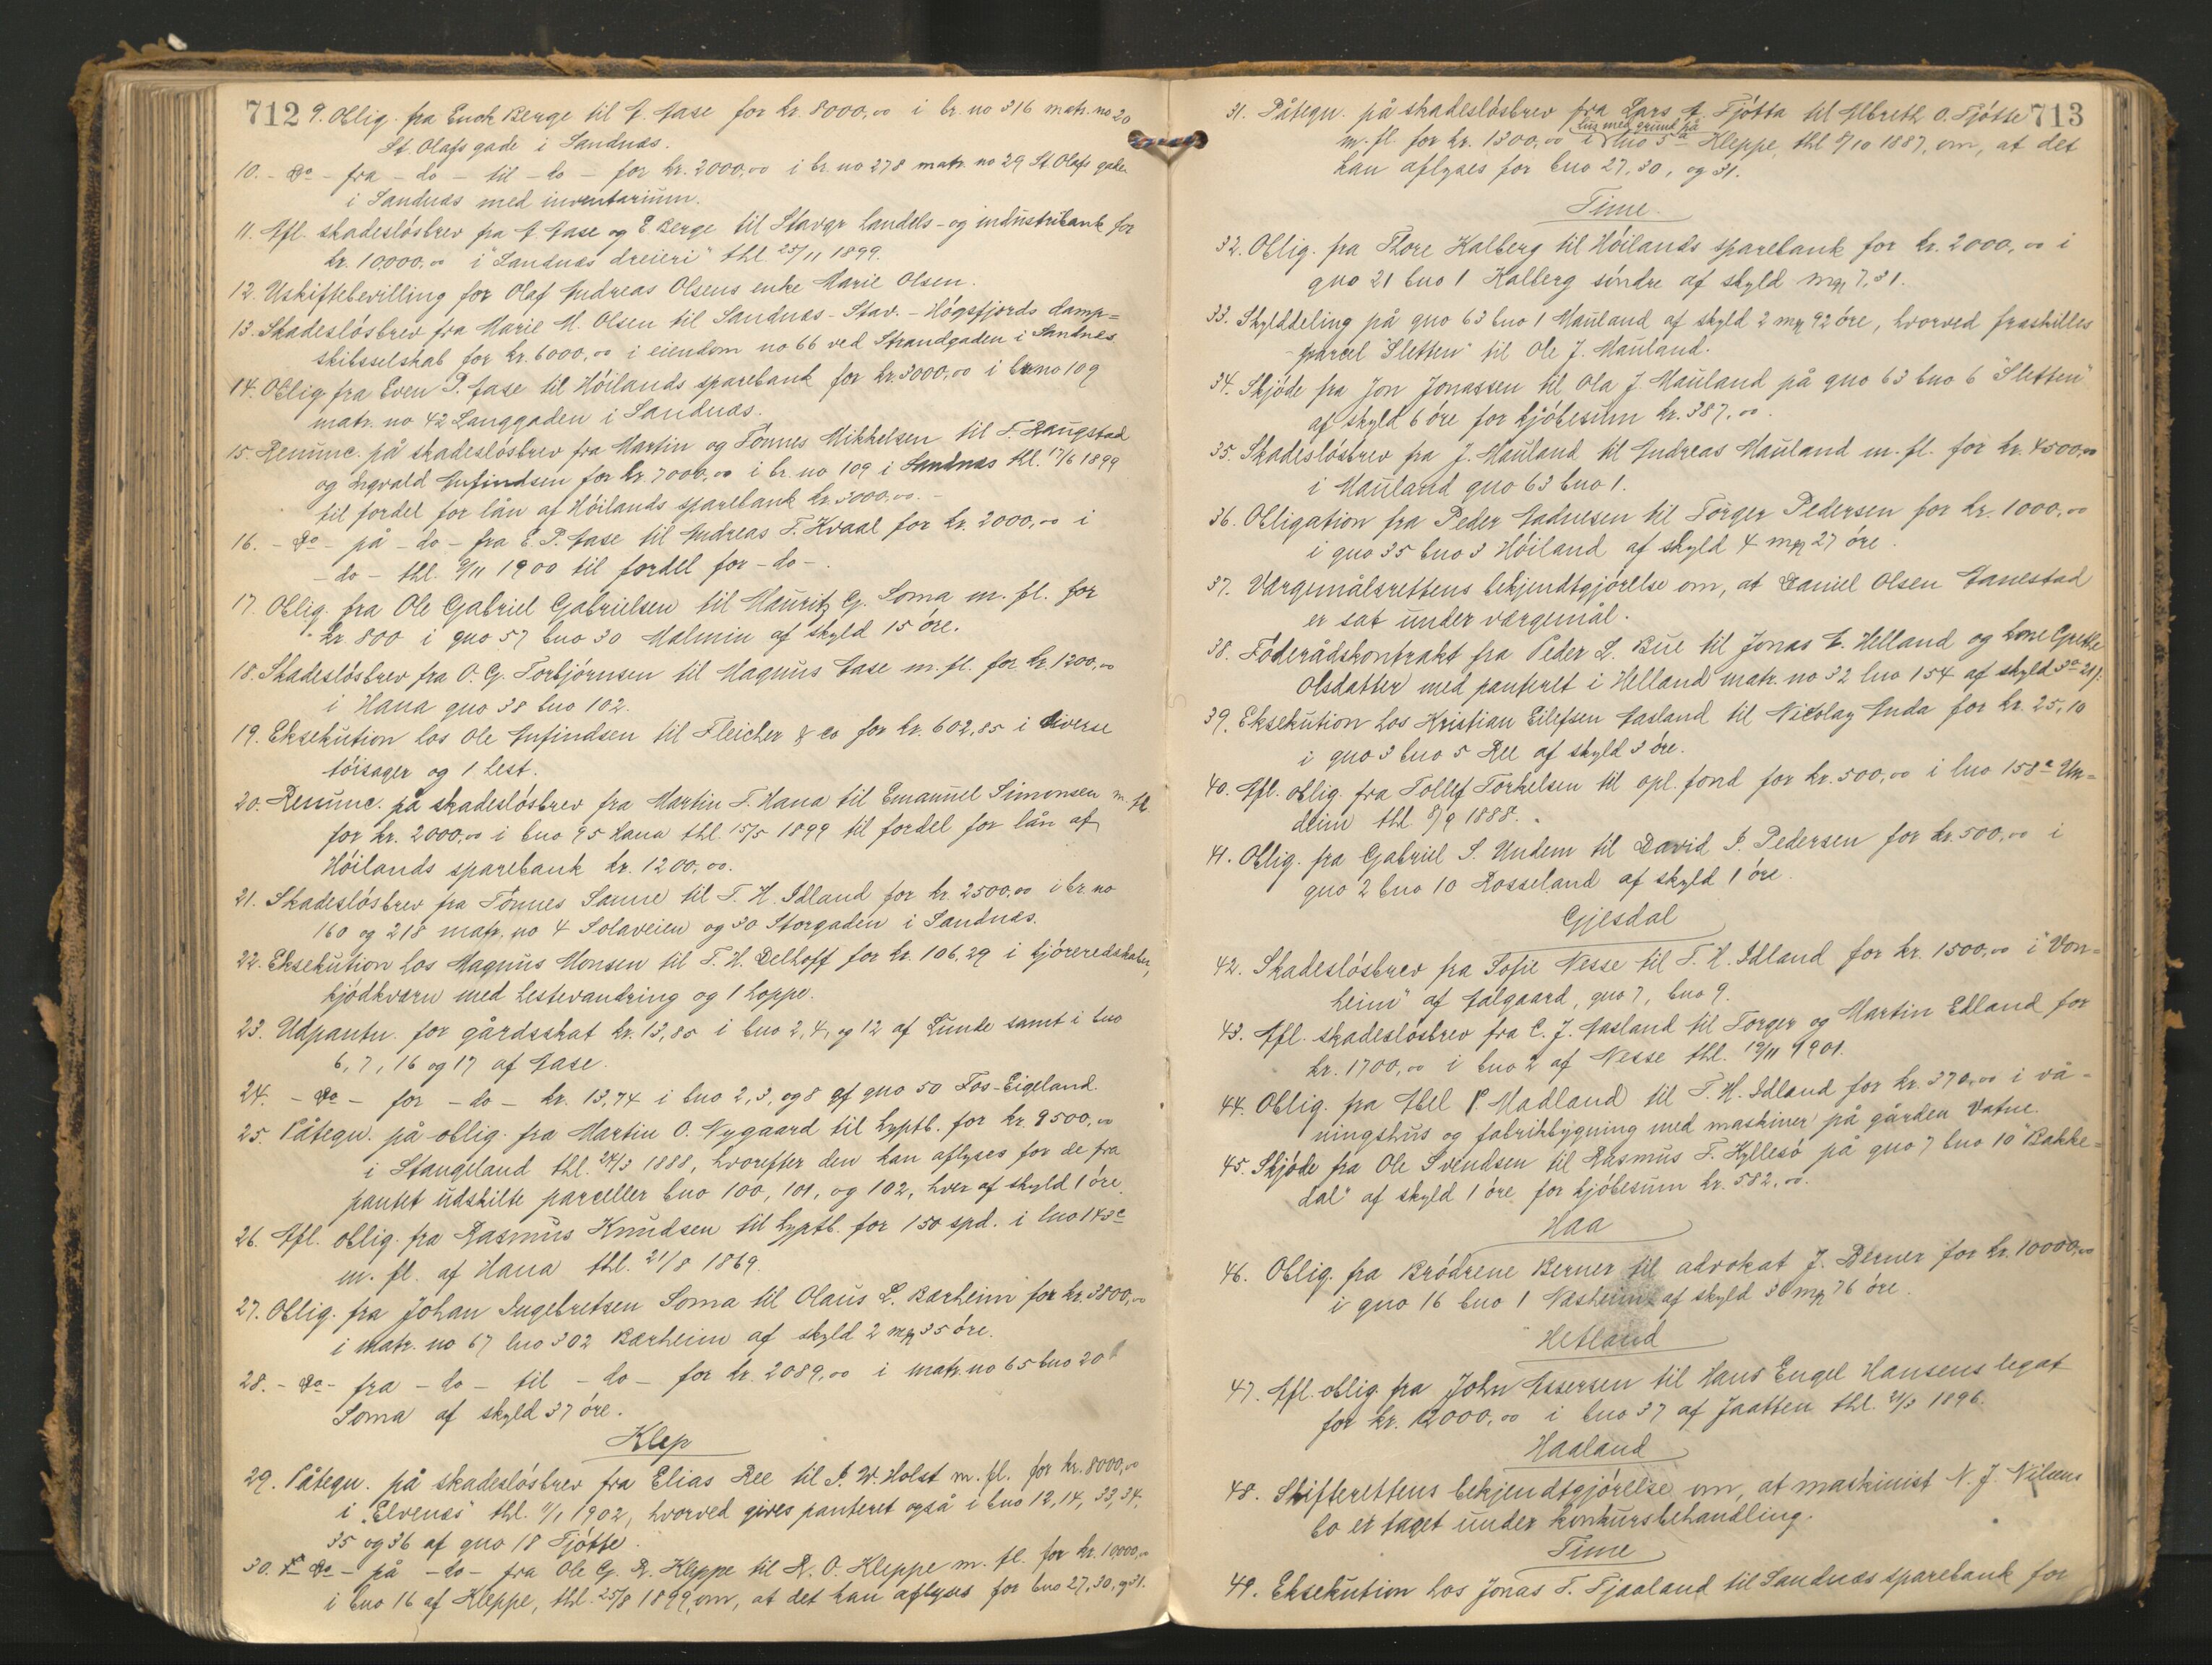 712
9. Oblig. fra Enok Berge til A. Aase for kr. 8000,00 i br. no 316 matr. no 20
St. Olafs gade i Sandnæs.
10. - Do - fra - do - til - do - for kr. 2000,00 i br. no 278 matr. no 29 St Olafs gade
i Sandnæs med inventarium.
11. Afl. skadesløsbrev fra A. Aase og E Berge til Stavgr handels- og industribank for
kr. 10,000,00 i "Sandnæs dreieri" thl. 25/11 1899.
12. Uskiftebevilling for Olaf Andreas Olsens enke Marie Olsen.
13. Skadesløsbrev fra Marie M. Olsen til Sandnæs - Stav. - Høgsfjords damp=
skibsselskab for kr. 6000,00 i eiendom no 66 ved Strandgaden i Sandnes
14. Oblig fra Even P. Aase til Høilands sparebank for kr. 3000,00 i br no 109
matr. no 42 Langgaden i Sandnæs.
15. Renunc. på skadesløsbrev fra Martin og Tønnes Mikkelsen til T. Haugstad
og Ingvald Anfindsen for kr. 7000,00 i br. no 109 i Sandnæs thl. 17/6 1899
til fordel for lån af Høilands sparebank kr. 3000,00. -
16. - Do - på - do - fra E. P. Aase til Andreas T. Kvaal for kr. 2000,00 i
- do - thl. 9/11 1900 til fordel for - do - .
17. Oblig. fra Ole Gabriel Gabrielsen til Mauritz G. Soma m. fl. for
kr 800 i gno 57 bno 30 Malmin af skyld 15 øre.
18. Skadesløsbrev fra O. G. Torbjørnsen til Magnus Aase m. fl. for kr. 1200,00
i Hana gno 38 bno 102.
19. Eksekution hos Ole Anfindsen til Fleicher & Co for kr. 602,85 i diverse
tøisager og 1 hest.
20. Renunc. på skadesløsbrev fra Martin T. Hana til Emanuel Simonsen m. fl.
for kr. 2000,00 i bno 95 Hana thl. 15/5 1899 til fordel for lån af
Høilands sparebank kr. 1200,00.
21. Skadesløsbrev fra Tønnes Sanne til T. H. Idland for kr. 2500,00 i br. no
160 og 218 matr. no 4 Solaveien og 30 Storgaden i Sandnæs.
22. Eksekution hos Magnus Monsen til T. H. Delhoff for kr. 106,29 i kjøreredskaber,
kjødkværn med hestevandring og 1 hoppe.
23. Udpantn. for gårdsskat kr. 13,80 i bno 2, 4, og 12 af Lunde samt i bno
6, 7, 16 og 17 af Aase.
24. - Do - for - do - kr. 13,74 i bno 2, 3, og 8 af gno 50 Fos-Eigeland.
25. Påtegn. på oblig. fra Martin O. Nygaard til hyptb. for kr. 9500,00
i Stangeland thl. 24/3 1888, hvorefter den kan aflyses for de fra
pantet udskilte parceller bno 100, 101, og 102, hver af skyld 1 øre.
26. Afl. oblig. fra Rasmus Knudsen til hyptb. for 150 spd. i lno 143c
m. fl. af Hana thl. 21/8 1869.
27. Oblig. fra Johan Ingebretsen Soma til Olaus L. Bærheim for kr. 3800,00
i matr. no 67 lno 302 Bærheim af skyld 2 mk 35 øre.
28. - Do - fra - do - til - do - for kr. 2089,00 i matr. no 65 bno 20
Soma af skyld 37 øre.
Klep
29. Påtegn. på skadesløsbrev fra Elias Ree til I. W. Holst m. fl. for kr. 8000,00
i "Elvenes" thl. 11/1 1902, hvorved gives panteret også i bno 12, 14, 33, 34,
35 og 36 af gno 18 Tjøtte.
30. - Do - på - do - fra Ole G. R. Kleppe til R. O. Kleppe m. fl. for kr. 10000,00
i bno 16 af Kleppe, thl. 25/8 1899, om, at det kan aflyses for bno 27, 30, og 31.
713
31. Påtegn. på skadesløsbrev fra Lars A. Tjøtta til Albreth O. Tjøtte
hus med grund på
m. fl. for kr. 1300,00 i lno 5a Kleppe, thl 8/10 1887, om, at det
kan aflyses for bno 27, 30, og 31.
Time.
32. Oblig. fra Thore Kalberg til Høilands sparebank for kr. 2000,00 i
gno 21 bno 1 Kalberg søndre af skyld mk 7,31.
33. Skylddeling på gno 63 bno 1 Mauland af skyld 2 mk 92 øre, hvorved fraskilles
parcel "Sletten" til Ole J. Mauland.
34. Skjøde fra Jon Jonassen til Ola J. Mauland på gno 63 bno 6 "Sletten"
af skyld 6 øre for kjøbesum kr. 387,00.
35. Skadesløsbrev fra J. Mauland til Andreas Mauland m. fl. for kr. 4500,00
i Mauland gno 63 bno 1.
36. Obligation fra Peder Aadnesen til Torger Pedersen for kr. 1000,00
i gno 35 bno 3 Høiland af skyld 4 mk 27 øre.
37. Værgemålsrettens bekjendtgjørelse om, at Daniel Olsen Aanestad
er sat under værgemål.
38. Føderådskontrakt fra Peder L. Bue til Jonas E. Helland og kone Grethe
Olsdatter med panteret i Helland matr. no 32 lno 154 af skyld 3o 21/.
39. Eksekution hos Kristian Eilefsen Aasland til Nicolay Anda for kr. 25,10
i gno 3 bno 5 Ree af skyld 3 øre.
40. Afl. oblig. fra Tollef Torkelsen til opl. fond for kr. 500,00 i lno 158a Un=
dheim thl. 8/9 1888.
41. Oblig. fra Gabriel S. Undem til David I. Pedersen for kr. 500,00 i
gno 2 bno 10 Rosseland af skyld 1 øre.
Gjesdal
42. Skadesløsbrev fra Sofie Nesse til T. H. Idland for kr. 1500,00 i "Von=
heim" af Aalgaard, gno 7, bno 9.
43. Afl. skadesløsbrev fra C. J. Aasland til Torger og Martin Edland for
kr. 1700,00 i bno 2 af Nesse thl. 19/11 1901.
44. Oblig. fra Abel P. Madland til T. H. Idland for kr. 370,00 i vå=
ningshus og fabrikbygning med maskiner på gården Vatne.
45. Skjøde fra Ole Svendsen til Rasmus T. Hyllesø på gno 7 bno 10 "Bakke=
dal" af skyld 1 øre for kjøbesum kr. 582,00.
Haa
46. Oblig. fra Brødrene Berner til advokat J. Berner for kr. 10000,00
i gno 16 bno 1 Næsheim af skyld 30 mk 76 øre.
Hetland
47. Afl. oblig. fra John Assersen til Hans Engel Hansens legat
for kr. 12000,00 i bno 37 af Jaatten thl. 21/3 1896.
Haaland
48. Skifterettens bekjendtgjørelse om, at maskinist N. J. Nilsens
bo er taget under konkursbehandling.
Time
49. Eksekution hos Jonas T. Tjaaland til Sandnæs sparebank for